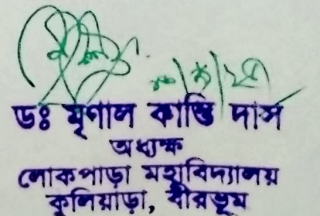 ডঃ মৃণাল কান্তি দাস
অধ্যক্ষ
লোকপাড়া মহাবিদ্যালয়
কুলিয়াড়া, বীরভূম